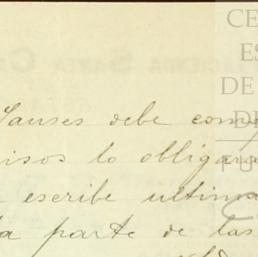 CE
ES
DE
DE
FU
Sauses debe com
isos lo obligar
escribe ultima
a parte de las